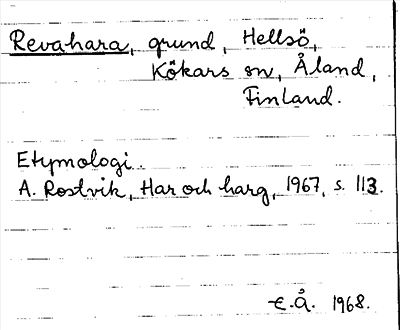 Revahara, grund, Hellsö,
Kökars sn, Åland,
Finland.
Etymologi.
A. Rostvik, Har och harg, 1967, s. 113.
E.Å. 1968.